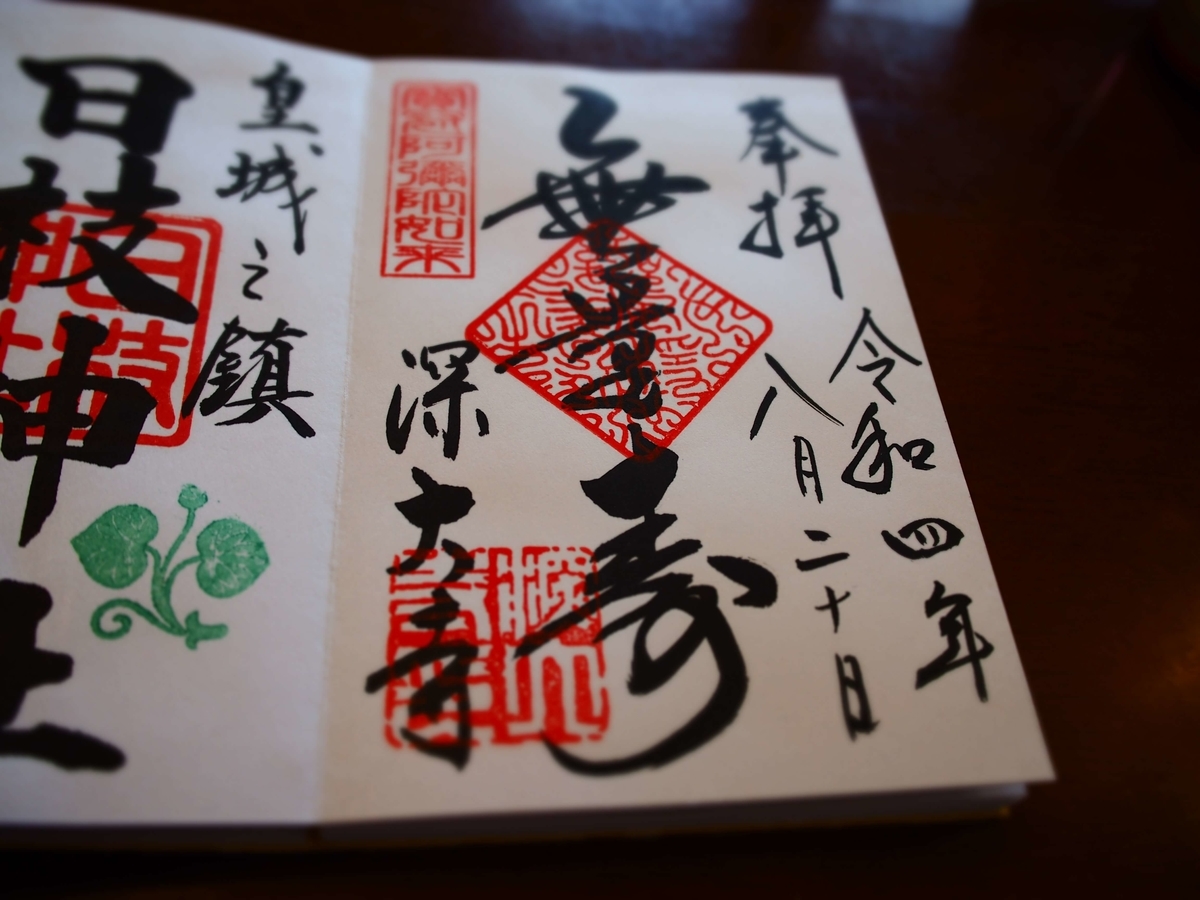 奉拝
令和四年
八月二十日
無量寿
寶冠阿彌陀如来
深大寺
皇城之鎮
日枝神社